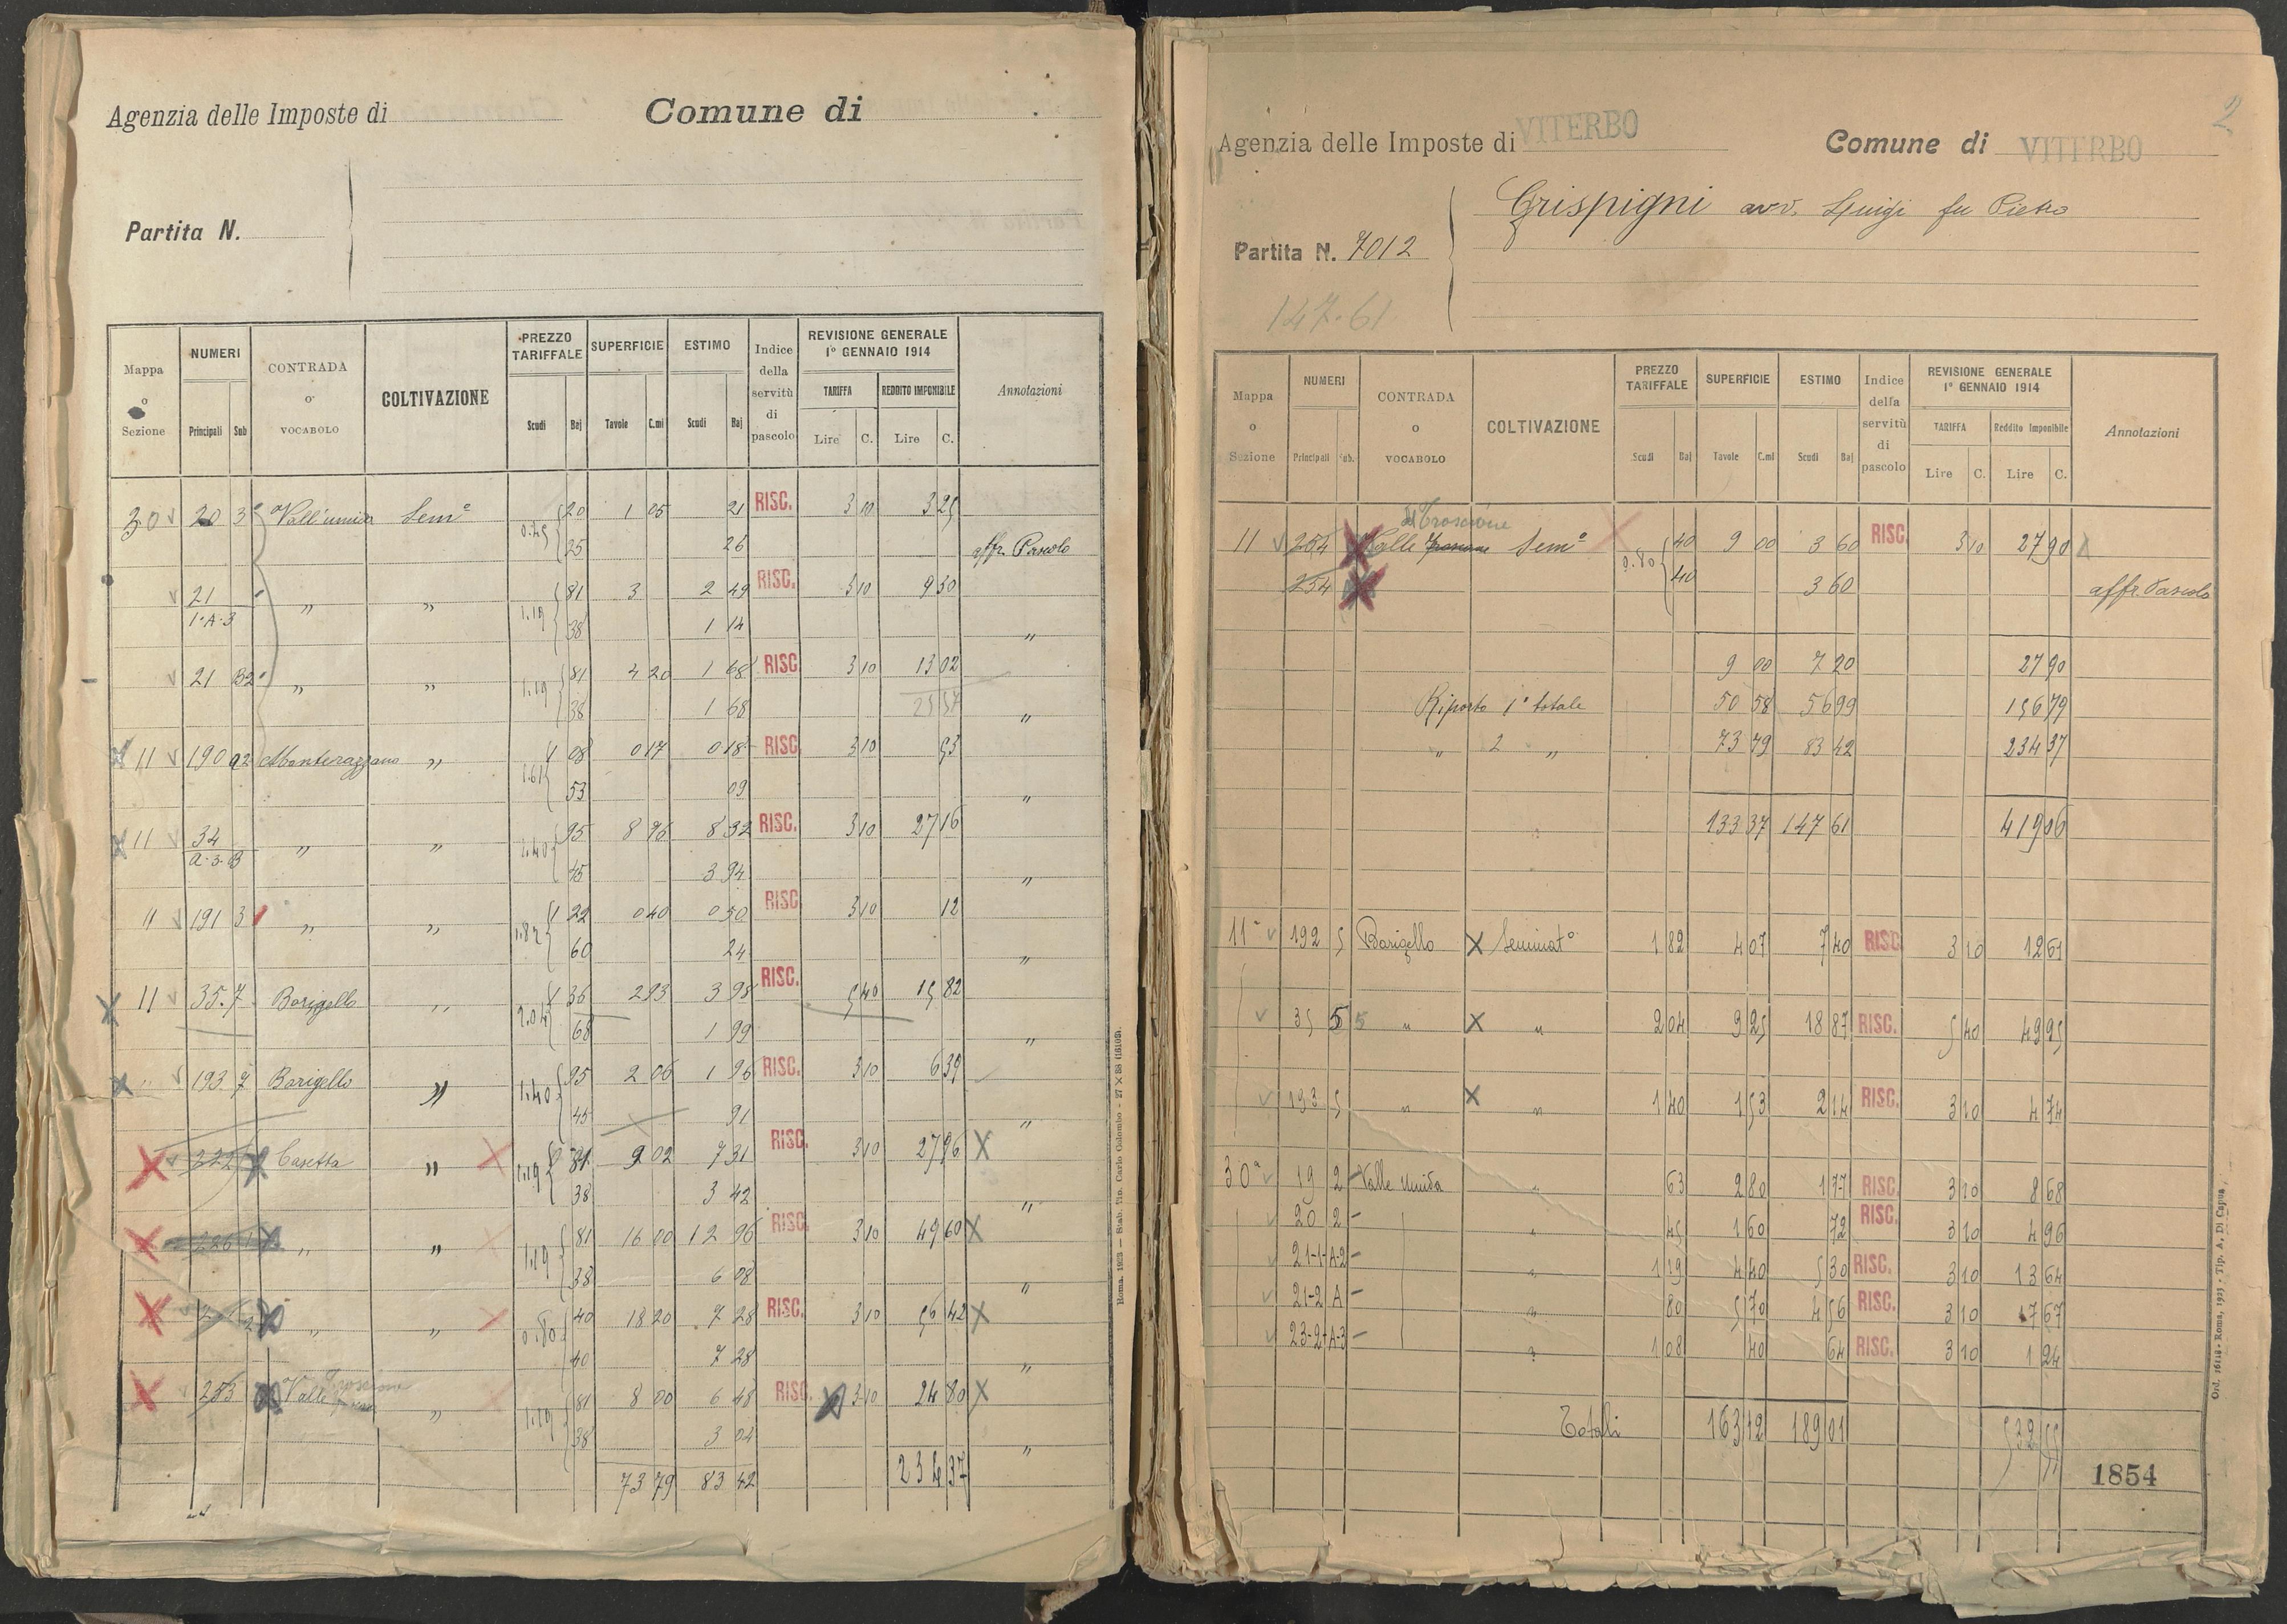 Agenzia delle Imposte di Comune di
Partita N.
Mappa o Sezione NUMERI Principali Sub CONTRADA o VOCABOLO COLTIVAZIONE PREZZO TARIFFALE Scudi Baj SUPERFICIE Tavole C.mi ESTIMO Scudi Baj Indice della servitù di pascolo REVISIONE GENERALE 1° GENNAIO 1914 TARIFFA Lire C. REDDITO IMPONIBILE Lire C. Annotazioni
30 20 3 Vall'umida Sem° 0.45 20 1 05 21 RISC. 3 10 3 25
25 26 affr. Pascolo
21 1·A·3 „ „ 1.19 81 3 2 49 RISC. 3 10 9 30
38 1 14 „
21 B2 „ „ 1.19 81 4 20 1 68 RISC 3 10 13 02
38 1 68 25 57 „
11 190 a2 Monterazzano „ 1.61 1 08 0 17 0 18 RISC 3 10 53
53 09 „
11 34 a·3·B „ „ 1.40 95 8 76 8 32 RISC. 3 10 27 16
45 3 94 „
11 191 3 „ „ 1.82 1 22 0 40 0 50 RISC 3 10 12
60 24 „
11 35.7 Barigello „ 2.04 1 36 2 93 3 98 RISC. 5 40 15 82
68 1 99 „
„ 193 7 Barigello „ 1.40 95 2 06 1 96 RISC. 3 10 6 39
45 91 „
222 Casetta „ 1.19 81 9 02 7 31 RISC. 3 10 27 96 X
38 3 42 „
226 1 „ „ 1.19 81 16 00 12 96 RISC. 3 10 49 60 X
38 6 08 „
2 „ „ 0.80 40 18 20 7 28 RISC. 3 10 56 42 X
40 7 28 „
253 Valle „ 1.19 81 8 00 6 48 RISC. 3 10 24 80 X
38 3 04 „
73 79 83 42 234 37
Roma, 1923 — Stab. Tip. Carlo Colombo - 27 X 38 (16103).
2
Agenzia delle Imposte di VITERBO Comune di VITERBO
Grispigni avv. Luigi fu Pietro
Partita N. 7012
147.61
Mappa o Sezione NUMERI Principali Sub. CONTRADA o VOCABOLO COLTIVAZIONE PREZZO TARIFFALE Scudi Baj SUPERFICIE Tavole C.mi ESTIMO Scudi Baj Indice della servitù di pascolo REVISIONE GENERALE 1° GENNAIO 1914 TARIFFA Lire C. Reddito Imponibile Lire C. Annotazioni
11 254 Valle Sem° 0.80 40 9 00 3 60 RISC 3 10 27 90
254 40 3 60 affr. Pascolo
9 00 7 20 27 90
Riporto 1° totale 50 58 56 99 156 79
„ 2 „ 73 79 83 42 234 37
133 37 147 61 419 06
11ª 192 5 Barigello X Seminat° 1 82 4 07 7 40 RISC 3 10 12 61
35 5 5 „ X „ 2 04 9 25 18 87 RISC. 5 40 49 95
193 5 „ X „ 1 40 1 53 2 14 RISC. 3 10 4 74
30ª 19 2 Valle Umida „ 63 2 80 1 77 RISC. 3 10 8 68
20 2 „ 45 1 60 72 RISC. 3 10 4 96
21-1-A-2 „ 1 19 4 40 5 30 RISC. 3 10 13 64
21-2 A „ 80 5 70 4 56 RISC. 3 10 17 67
23-2-A-3 „ 1 08 40 64 RISC. 3 10 1 24
Totali 163 12 189 01 532 55
1854
Ord. 16118 - Roma, 1923 - Tip. A. Di Capua